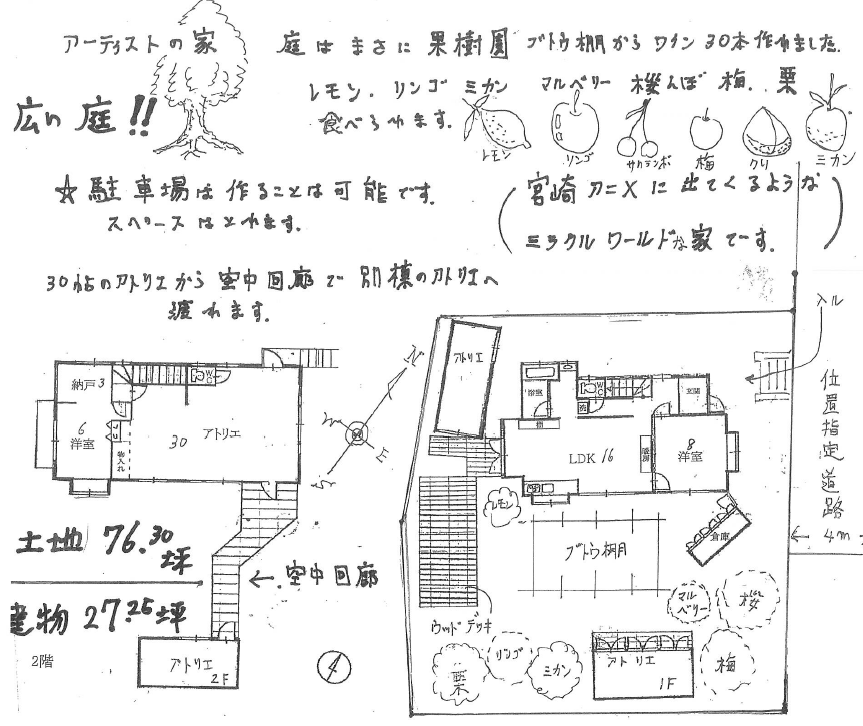 アーティストの家
庭はまさに果樹園 ブドウ棚からワイン30本作れました.
広い庭!!
レモン. リンゴ ミカン マルベリー 桜んぼ 梅.. 栗
食べられます.
レモン
リンゴ
サクランボ
梅
クリ
ミカン
☆駐車場は作ることは可能です.
スペースはとれます.
(宮崎アニメに出てくるような
ミラクルワールドな家でーす.)
30帖のアトリエから空中回廊で別棟のアトリエへ
渡れます.
納戸 3
WC
6
洋室
物入れ
30 アトリエ
N
E
S
土地 76.30坪
建物 27.25坪
←空中回廊
2階
アトリエ
2F
アトリエ
浴室
WC
洗
玄関
棚
LDK 16
暖房
8
洋室
入ル
位置指定道路
←4m→
レモン
ブドウ棚
倉庫
ウッドデッキ
マルベリー
桜
栗
リンゴ
ミカン
アトリエ
1F
梅